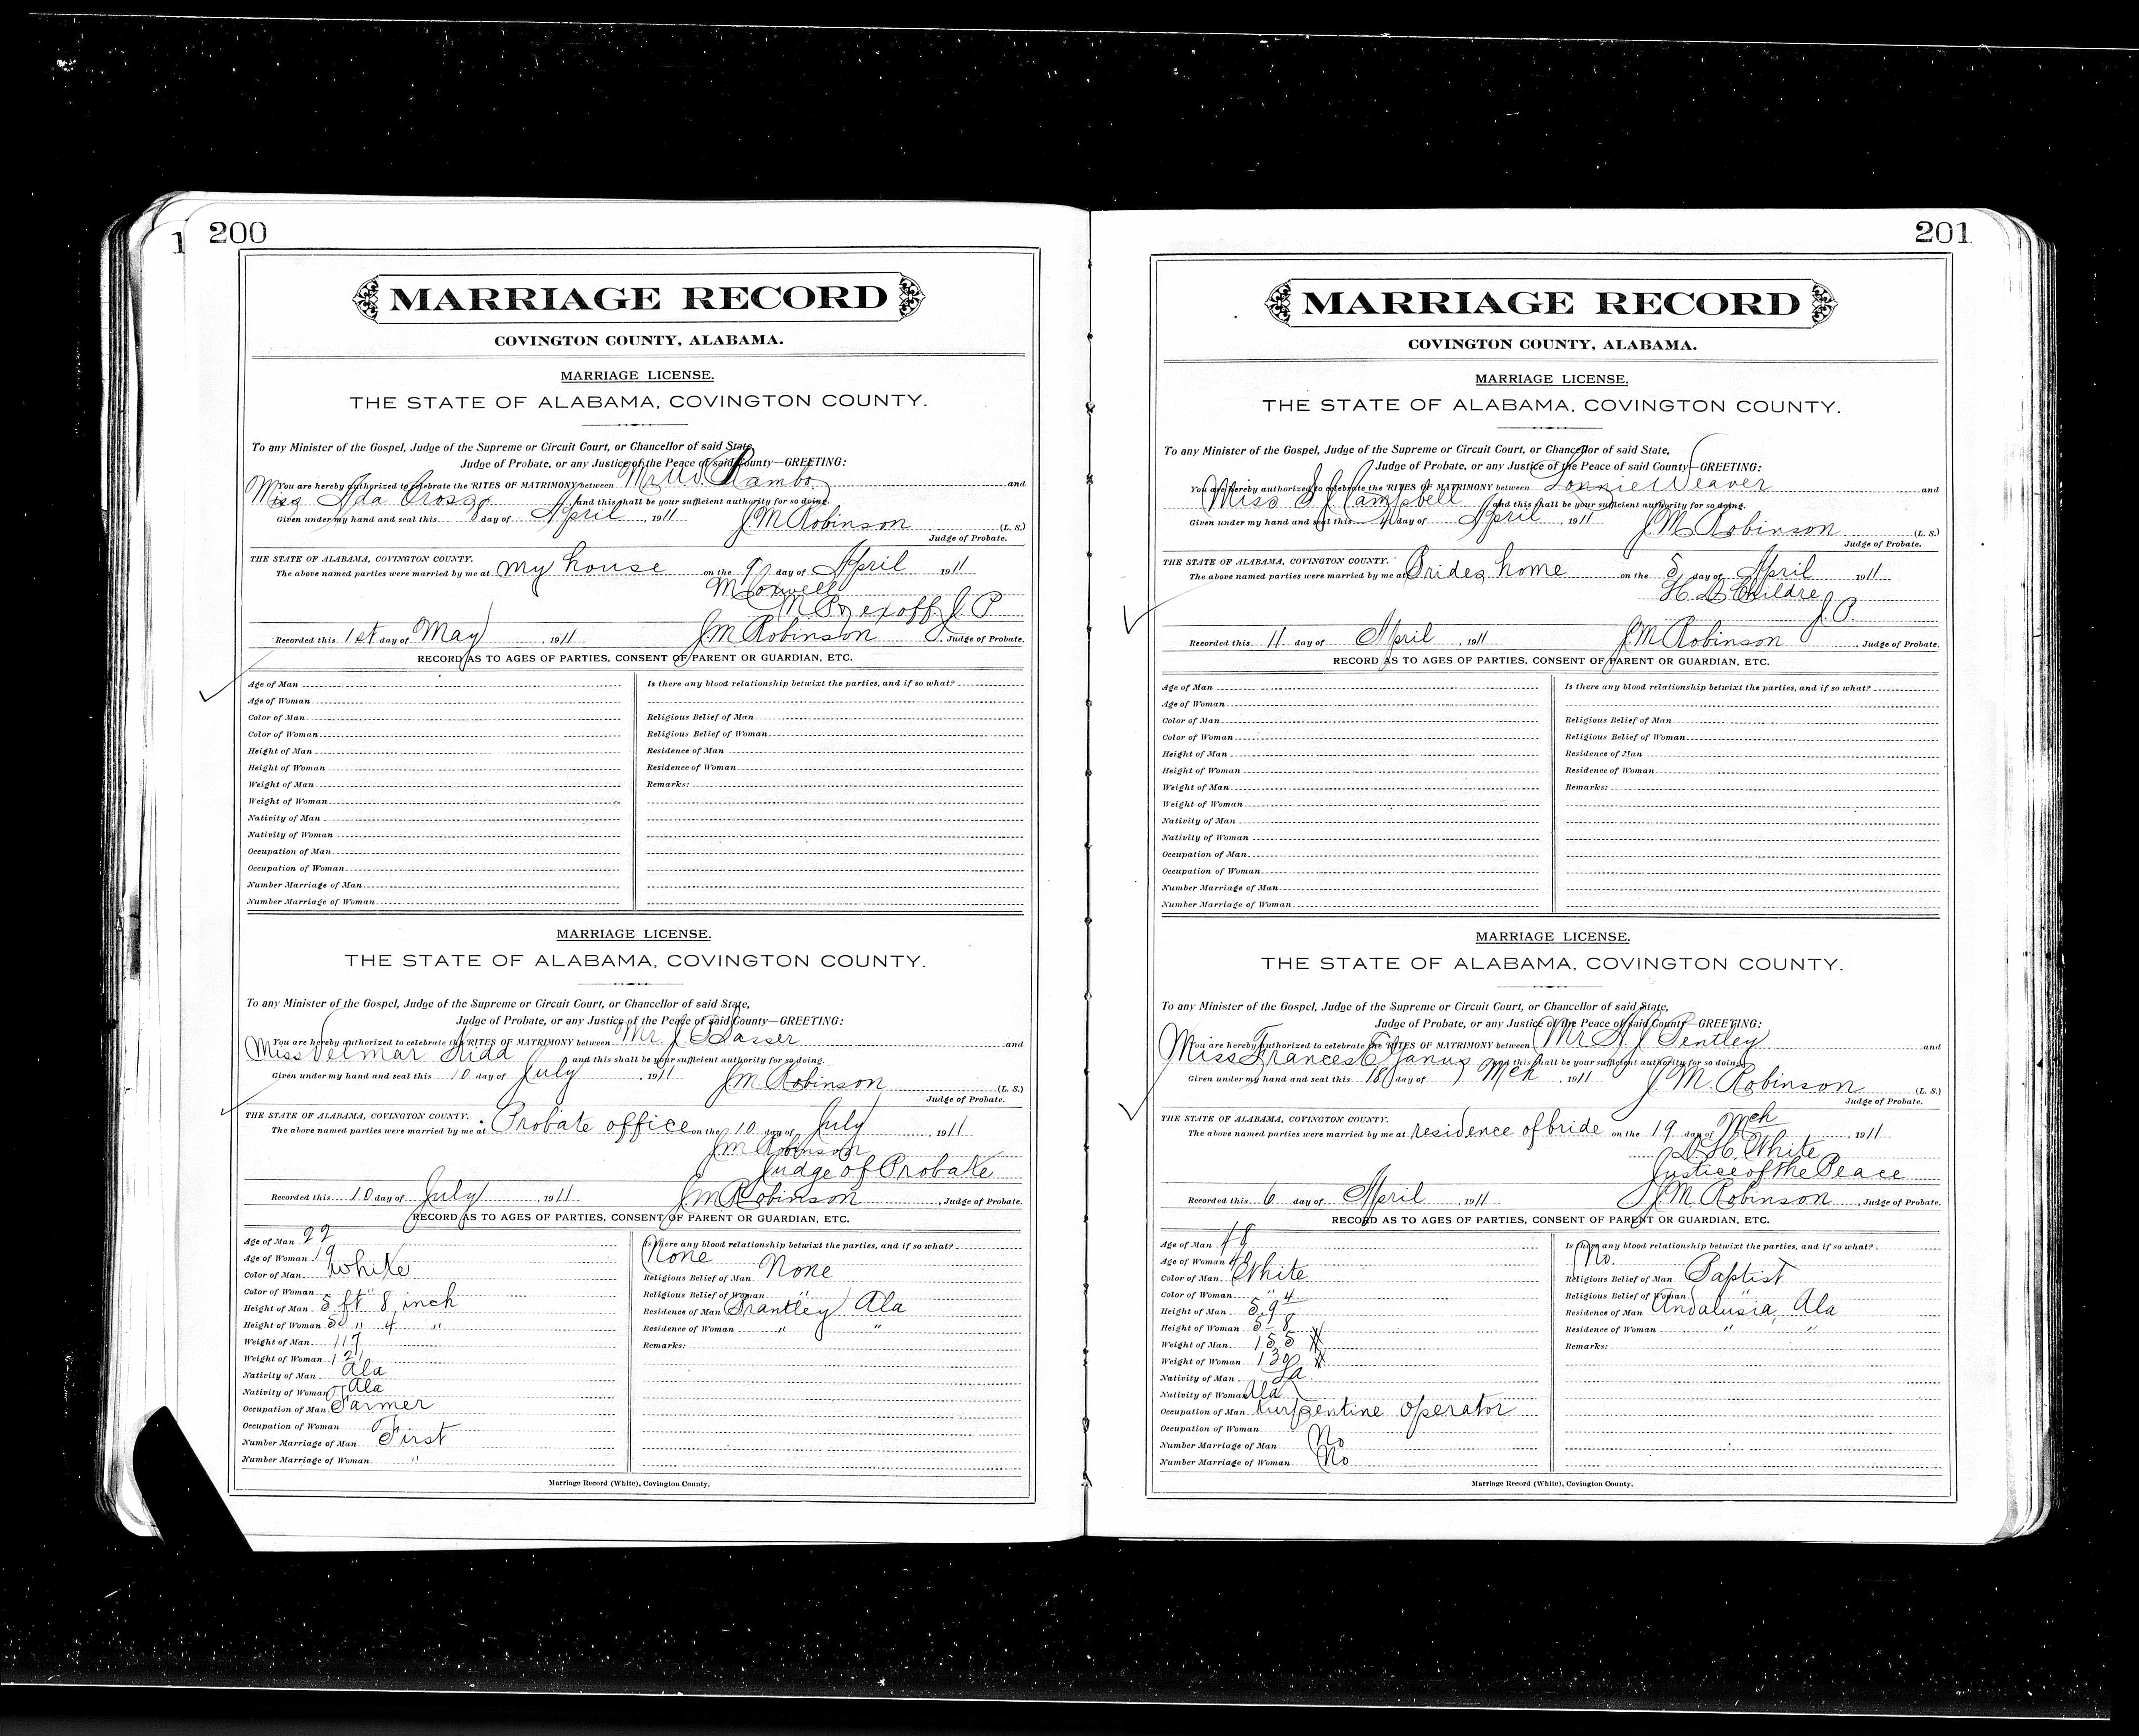 200
MARRIAGE RECORD
COVINGTON COUNTY, ALABAMA.
MARRIAGE LICENSE.
THE STATE OF ALABAMA, COVINGTON COUNTY.
To any Minister of the Gospel, Judge of the Supreme or Circuit Court, or Chancellor of said State,
Judge of Probate, or any Justice of the Peace of said County—GREETING:
You are hereby authorized to celebrate the RITES OF MATRIMONY between Mr Rambo and
Miss Ada Cross and this shall be your sufficient authority for so doing.
Given under my hand and seal this 8 day of April, 1911 J.M Robinson (L. S.)
Judge of Probate.
THE STATE OF ALABAMA, COVINGTON COUNTY.
The above named parties were married by me at my house on the 9 day of April 1911
M. P. ex off J. P
Recorded this 1st day of May, 1911 J.M Robinson, Judge of Probate.
RECORD AS TO AGES OF PARTIES, CONSENT OF PARENT OR GUARDIAN, ETC.
Age of Man
Age of Woman
Color of Man
Color of Woman
Height of Man
Height of Woman
Weight of Man
Weight of Woman
Nativity of Man
Nativity of Woman
Occupation of Man
Occupation of Woman
Number Marriage of Man
Number Marriage of Woman
Is there any blood relationship betwixt the parties, and if so what?
Religious Belief of Man
Religious Belief of Woman
Residence of Man
Residence of Woman
Remarks:
MARRIAGE LICENSE.
THE STATE OF ALABAMA, COVINGTON COUNTY.
To any Minister of the Gospel, Judge of the Supreme or Circuit Court, or Chancellor of said State,
Judge of Probate, or any Justice of the Peace of said County—GREETING:
You are hereby authorized to celebrate the RITES OF MATRIMONY between Mr J E Sasser and
Miss Velmar Kidd and this shall be your sufficient authority for so doing.
Given under my hand and seal this 10 day of July, 1911 J.M Robinson (L. S.)
Judge of Probate.
THE STATE OF ALABAMA, COVINGTON COUNTY.
The above named parties were married by me at Probate office on the 10 day of July, 1911
J M Robinson
Judge of Probate
Recorded this 10 day of July, 1911 J M Robinson, Judge of Probate.
RECORD AS TO AGES OF PARTIES, CONSENT OF PARENT OR GUARDIAN, ETC.
Age of Man 22
Age of Woman 19
Color of Man white
Color of Woman "
Height of Man 5 ft 8 inch
Height of Woman 5 " 4 "
Weight of Man 117
Weight of Woman 121
Nativity of Man Ala
Nativity of Woman Ala
Occupation of Man Farmer
Occupation of Woman
Number Marriage of Man First
Number Marriage of Woman "
Is there any blood relationship betwixt the parties, and if so what?
None
Religious Belief of Man None
Religious Belief of Woman "
Residence of Man Brantley Ala
Residence of Woman " "
Remarks:
Marriage Record (White), Covington County.
201
MARRIAGE RECORD
COVINGTON COUNTY, ALABAMA.
MARRIAGE LICENSE.
THE STATE OF ALABAMA, COVINGTON COUNTY.
To any Minister of the Gospel, Judge of the Supreme or Circuit Court, or Chancellor of said State,
Judge of Probate, or any Justice of the Peace of said County—GREETING:
You are hereby authorized to celebrate the RITES OF MATRIMONY between Lonnie Weaver and
Miss J Campbell and this shall be your sufficient authority for so doing.
Given under my hand and seal this 4 day of April, 1911 J.M Robinson (L. S.)
Judge of Probate.
THE STATE OF ALABAMA, COVINGTON COUNTY.
The above named parties were married by me at Brides home on the 5 day of April 1911
Childre
J. P.
Recorded this 11 day of April, 1911 J.M Robinson, Judge of Probate.
RECORD AS TO AGES OF PARTIES, CONSENT OF PARENT OR GUARDIAN, ETC.
Age of Man
Age of Woman
Color of Man
Color of Woman
Height of Man
Height of Woman
Weight of Man
Weight of Woman
Nativity of Man
Nativity of Woman
Occupation of Man
Occupation of Woman
Number Marriage of Man
Number Marriage of Woman
Is there any blood relationship betwixt the parties, and if so what?
Religious Belief of Man
Religious Belief of Woman
Residence of Man
Residence of Woman
Remarks:
MARRIAGE LICENSE.
THE STATE OF ALABAMA, COVINGTON COUNTY.
To any Minister of the Gospel, Judge of the Supreme or Circuit Court, or Chancellor of said State,
Judge of Probate, or any Justice of the Peace of said County—GREETING:
You are hereby authorized to celebrate the RITES OF MATRIMONY between Mr J Bentley and
Miss Frances E Janus and this shall be your sufficient authority for so doing.
Given under my hand and seal this 18 day of Mch 1911 J. M. Robinson (L. S.)
Judge of Probate.
THE STATE OF ALABAMA, COVINGTON COUNTY.
The above named parties were married by me at residence of bride on the 19 day of Mch, 1911
H. White
Justice of the Peace
Recorded this 6 day of April 1911 J.M. Robinson, Judge of Probate.
RECORD AS TO AGES OF PARTIES, CONSENT OF PARENT OR GUARDIAN, ETC.
Age of Man 48
Age of Woman
Color of Man White
Color of Woman "
Height of Man 5.9
Height of Woman
Weight of Man 155 #
Weight of Woman 130 #
Nativity of Man
Nativity of Woman Ala
Occupation of Man turpentine operator
Occupation of Woman
Number Marriage of Man No
Number Marriage of Woman No
Is there any blood relationship betwixt the parties, and if so what?
No.
Religious Belief of Man Baptist
Religious Belief of Woman
Residence of Man Andalusia, Ala
Residence of Woman " "
Remarks:
Marriage Record (White), Covington County.